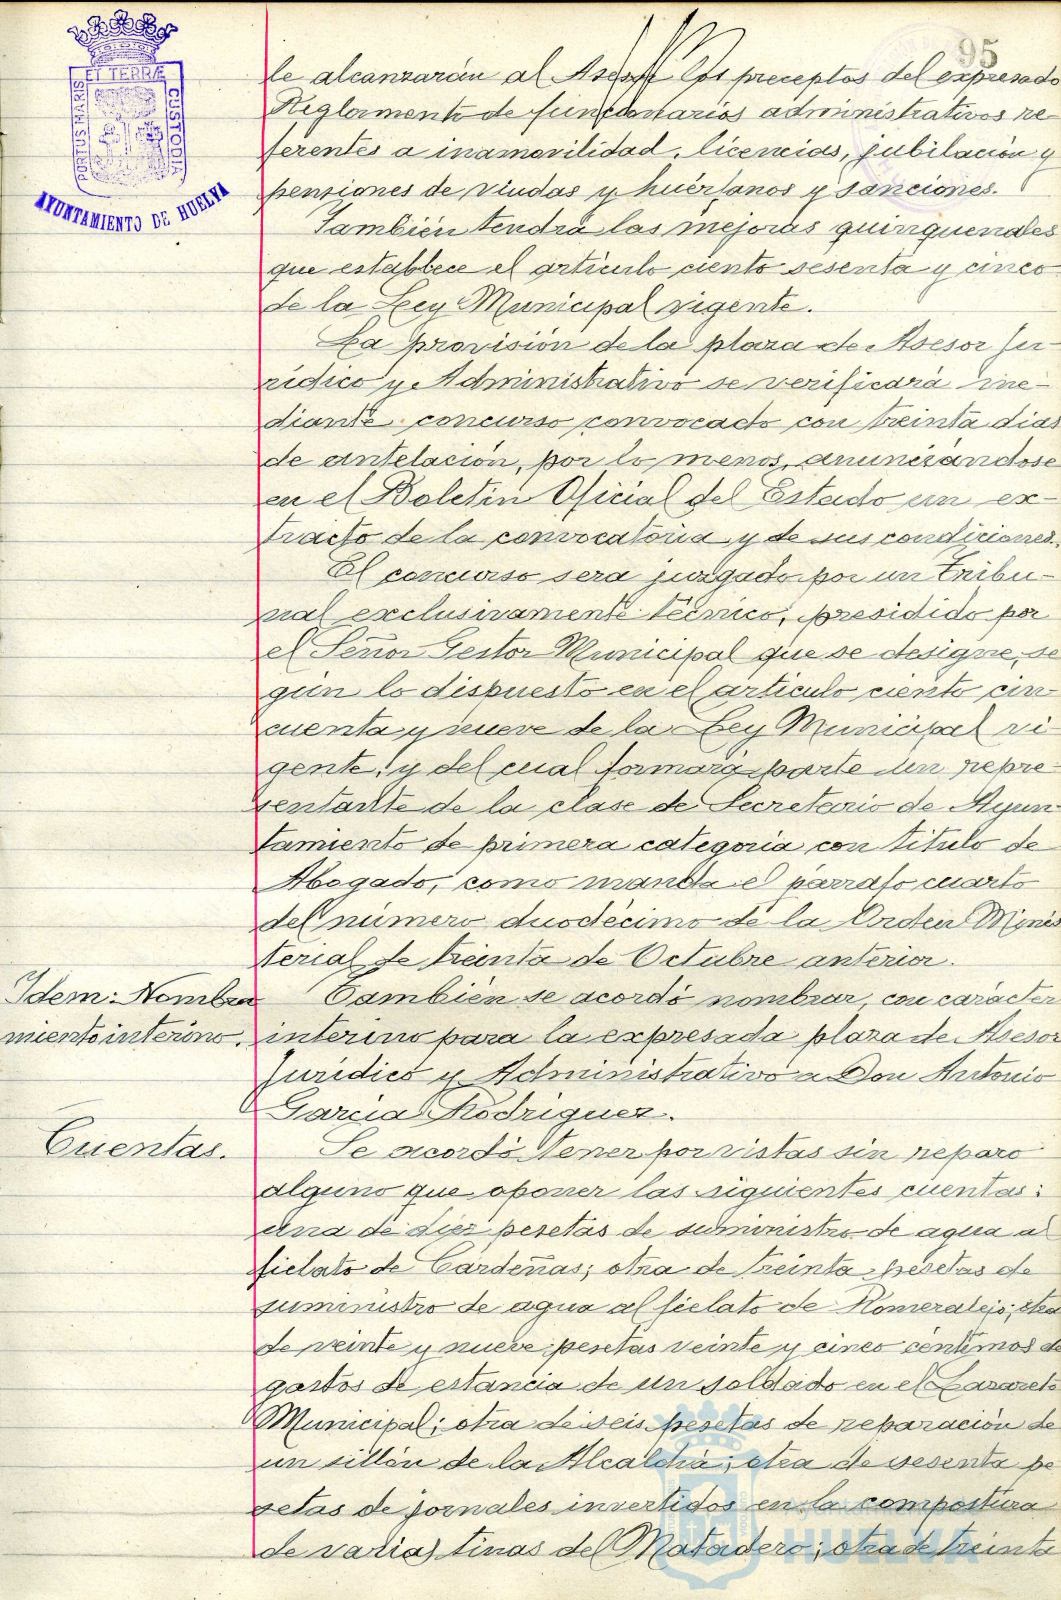 95
ET TERRÆ
PORTUS MARIS
CUSTODIA
AYUNTAMIENTO DE HUELVA
le alcanzarán al Asesor los preceptos del expresado
Reglamento de funcionarios administrativos re-
ferentes a inamovilidad, licencias, jubilación y
pensiones de viudas y huérfanos y sanciones.
También tendrá las mejoras quinquenales
que establece el artículo ciento sesenta y cinco
de la Ley Municipal vigente.
La provisión de la plaza de Asesor Ju-
rídico y Administrativo se verificará me-
diante concurso convocado con treinta dias
de antelación, por lo menos, anunciándose
en el Boletín Oficial del Estado un ex-
tracto de la convocatoria y de sus condiciones.
El concurso será juzgado por un Tribu-
nal exclusivamente técnico, presidido por
el Señor Gestor Municipal que se designe, se
gún lo dispuesto en el artículo ciento cin
cuenta y nueve de la Ley Municipal vi-
gente, y del cual formará parte un repre-
sentante de la clase de Secretario de Ayun-
tamiento de primera categoría con título de
Abogado, como manda el párrafo cuarto
del número duodécimo de la Orden Minis
terial de treinta de Octubre anterior.
Idem: Nombra
miento interino.
También se acordó nombrar, con carácter
interino para la expresada plaza de Asesor
Jurídico y Administrativo a Don Antonio
García Rodríguez.
Cuentas.
Se acordó tener por vistas sin reparo
alguno que oponer las siguientes cuentas:
una de diez pesetas de suministro de agua al
fielato de Cárdeñas; otra de treinta pesetas de
suministro de agua al fielato de Romeralejo; otra
de veinte y nueve pesetas veinte y cinco céntimos de
gastos de estancia de un soldado en el Lazareto
Municipal; otra de seis pesetas de reparación de
un sillón de la Alcaldía; otra de sesenta pe
setas de jornales invertidos en la compostura
de varias tinas del Matadero; otra de treinta
HUELVA